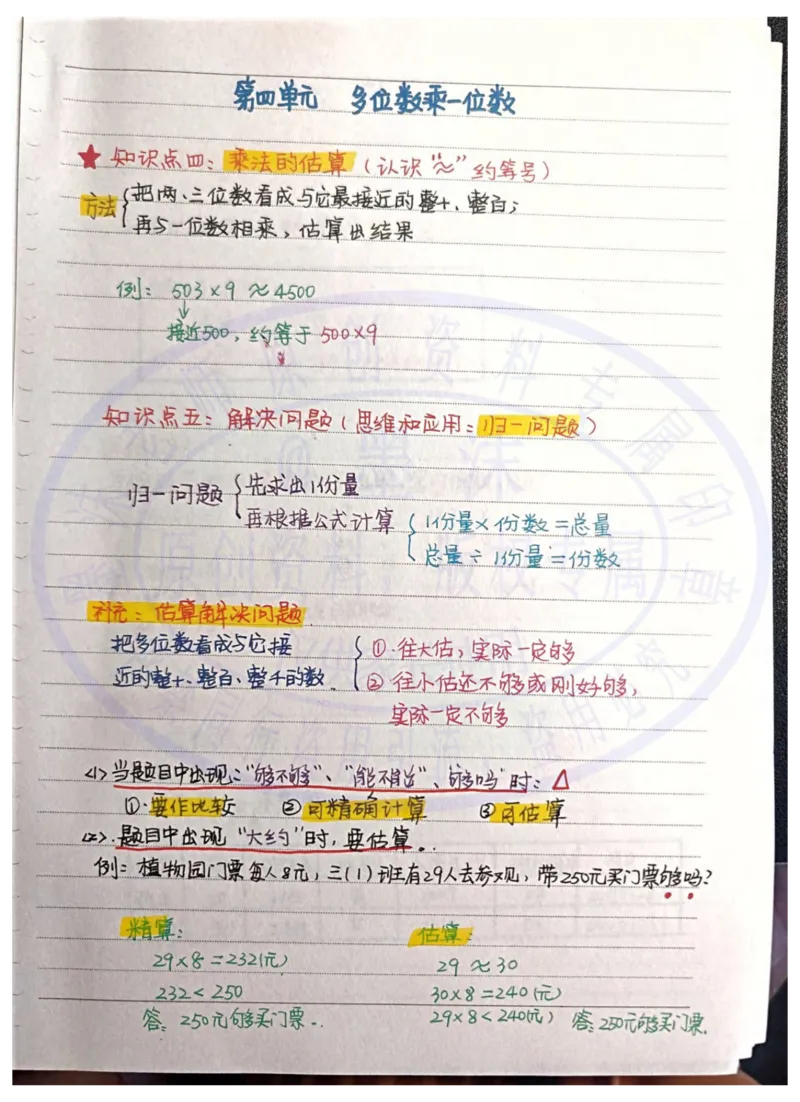 第四单元 多位数乘一位数
★ 知识点四：乘法的估算（认识"≈"约等号）
方法{把两、三位数看成与它最接近的整十、整百；
再与一位数相乘，估算出结果
例：503×9≈4500
↓
接近500，约等于500×9
知识点五：解决问题（思维和应用：归一问题）
归一问题{先求出1份量
再根据公式计算{1份量×份数=总量
总量÷1份量=份数
补充：估算解决问题
把多位数看成与它接
近的整十、整百、整千的数.
{①.往大估，实际一定够
②往小估还不够或刚好够，
实际一定不够
<1>当题目中出现："够不够"、"能不能"、够吗"时：△
①.要作比较 ②可精确计算 ③可估算
<2>.题目中出现"大约"时，要估算。
例：植物园门票每人8元，三(1)班有29人去参观，带250元买门票够吗?
精算：
29×8=232(元)
232<250
答：250元够买门票..
估算：
29≈30
30×8=240(元)
29×8<240(元) 答：250元够买门票.